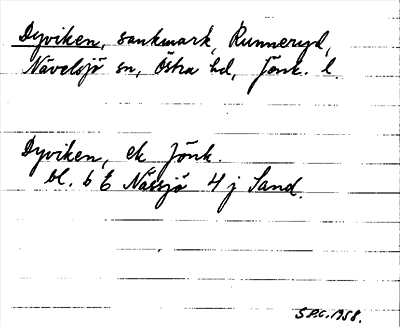 Dyviken, sankmark, Runneryd,
Nävelsjö sn, Östra hd, Jönk. l.
Dyviken, ek Jönk.
bl. 6 E Nässjö 4 j Sand.
S.P.C. 1958.